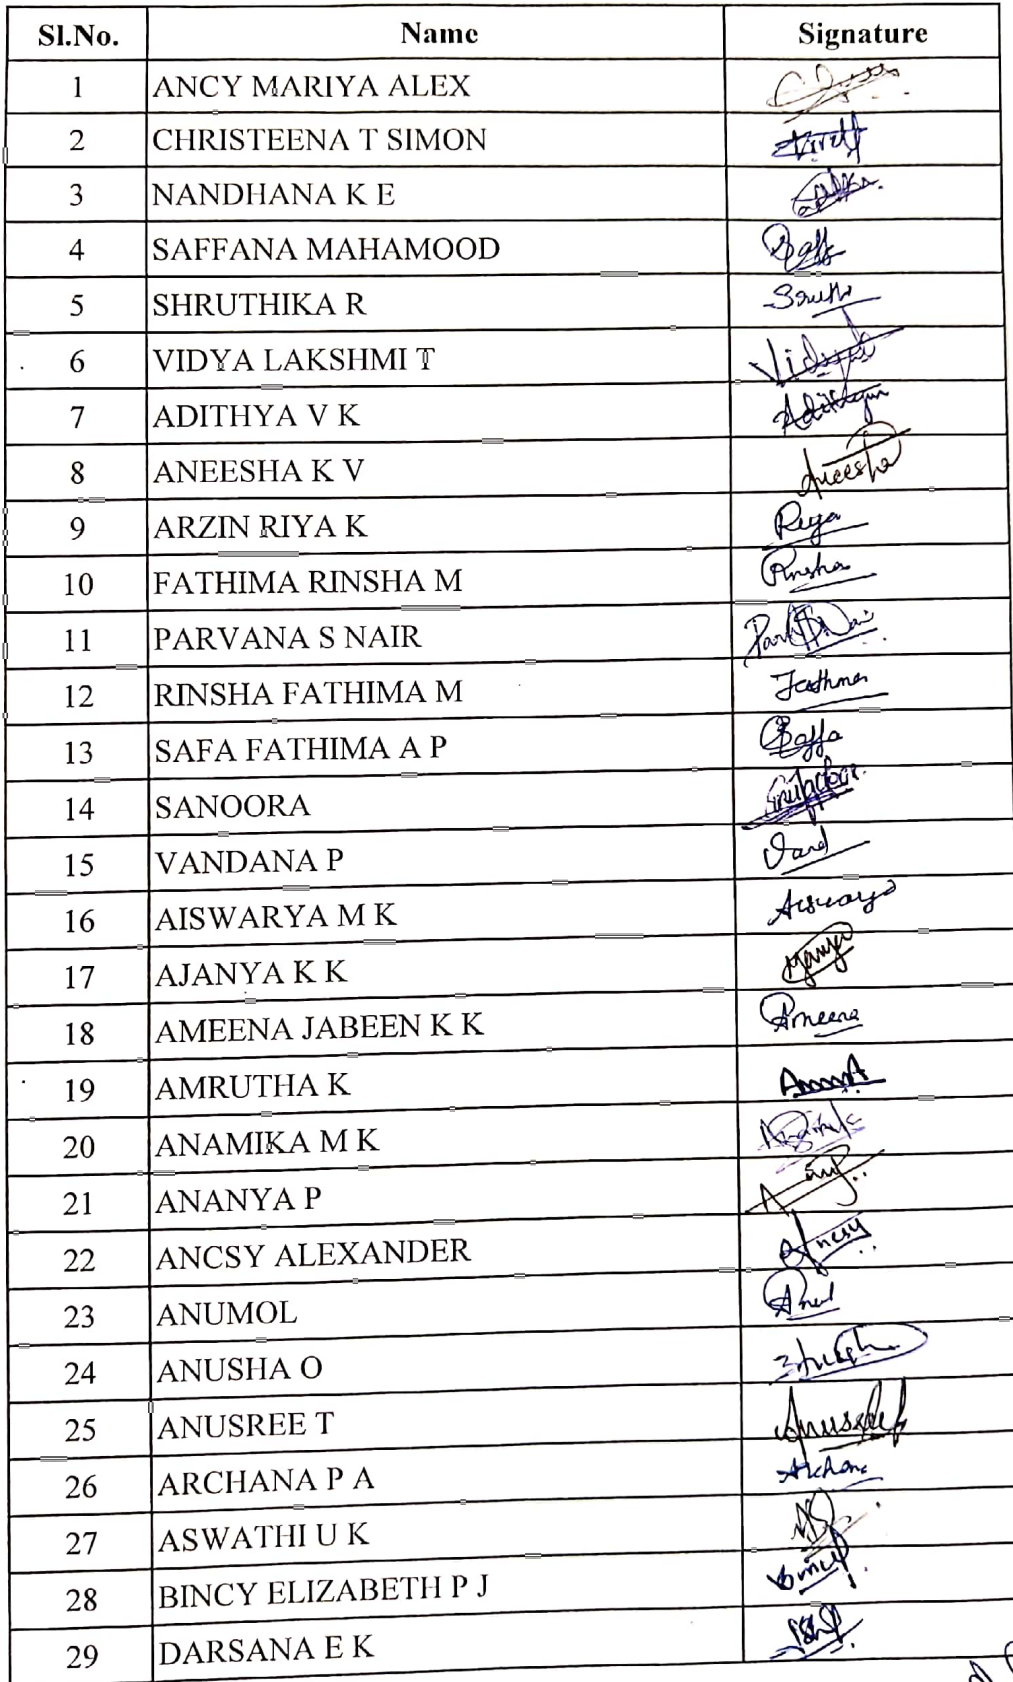 Sl.No. Name Signature
1 ANCY MARIYA ALEX
2 CHRISTEENA T SIMON
3 NANDHANA K E
4 SAFFANA MAHAMOOD
5 SHRUTHIKA R
6 VIDYA LAKSHMI T
7 ADITHYA V K
8 ANEESHA K V Aneesha
9 ARZIN RIYA K Riya
10 FATHIMA RINSHA M Rinsha
11 PARVANA S NAIR
12 RINSHA FATHIMA M Fathima
13 SAFA FATHIMA A P
14 SANOORA
15 VANDANA P
16 AISWARYA M K
17 AJANYA K K
18 AMEENA JABEEN K K Ameena
19 AMRUTHA K
20 ANAMIKA M K
21 ANANYA P
22 ANCSY ALEXANDER Ancsy
23 ANUMOL
24 ANUSHA O
25 ANUSREE T
26 ARCHANA P A Archana
27 ASWATHI U K
28 BINCY ELIZABETH P J
29 DARSANA E K